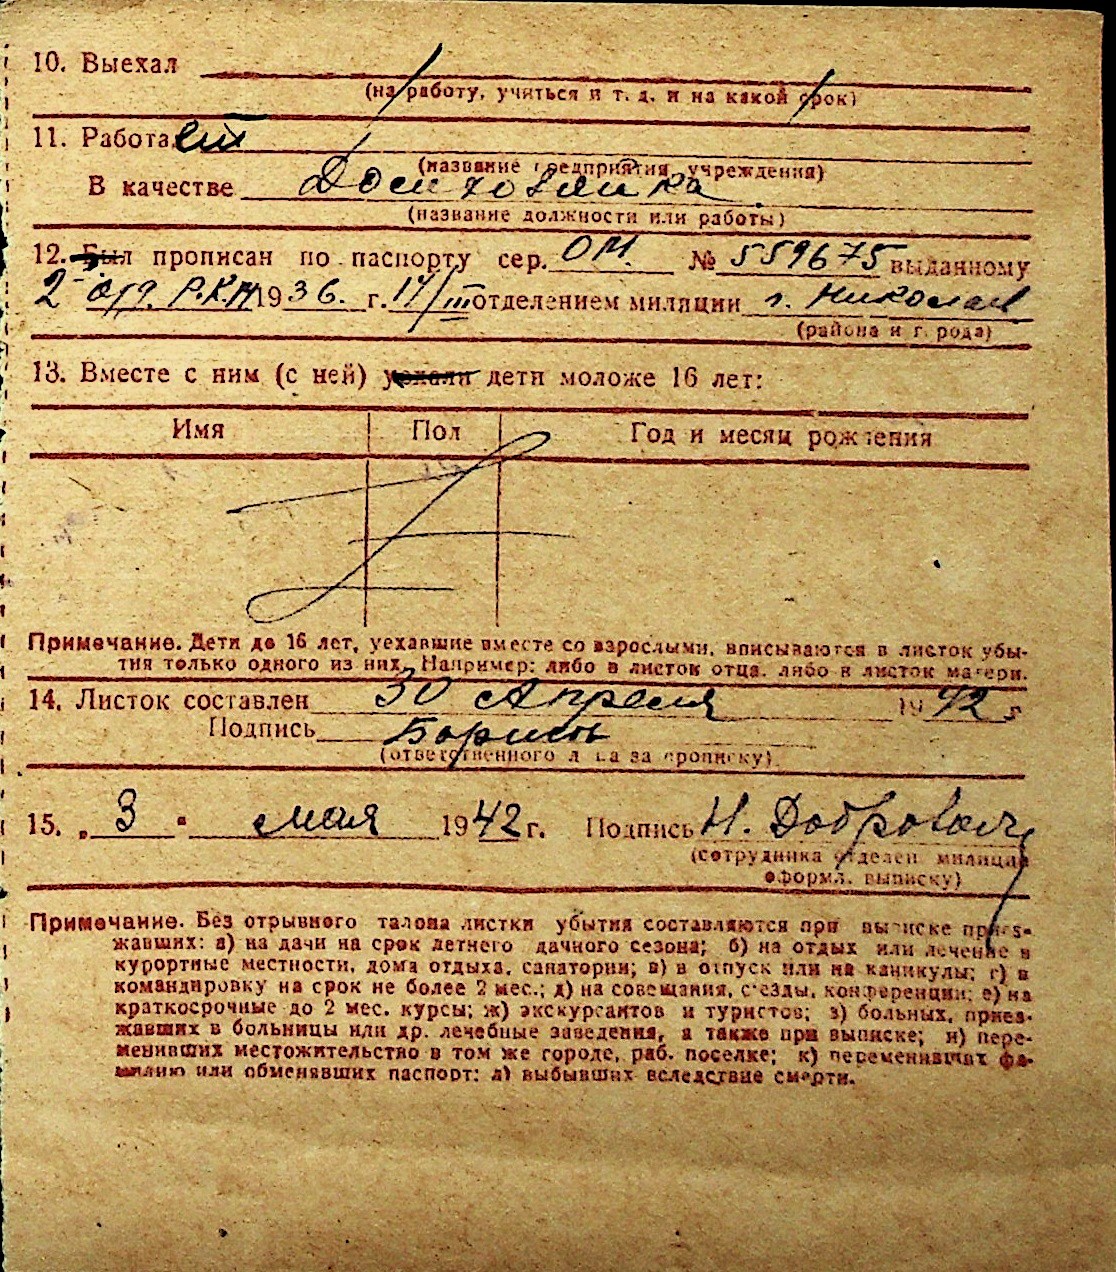 10. Выехал
(на работу, учиться и т. д. и на какой срок)
11. Работает
(название предприятия учреждения)
В качестве Домохозяйка
(название должности или работы)
12. Был прописан по паспорту сер. ОМ. № 559675 выданному
2 отд. Р.К.М 1936. г. 14/III отделением милиции г. Николаев
(района и города)
13. Вместе с ним (с ней) уехали дети моложе 16 лет:
Имя Пол Год и месяц рождения
Примечание. Дети до 16 лет, уехавшие вместе со взрослыми, вписываются в листок убы-
тия только одного из них. Например: либо в листок отца, либо в листок матери.
14. Листок составлен 30 Апреля 1942 г.
Подпись
(ответственного лица за прописку)
15. „ 3 " мая 1942 г. Подпись Н. Добровол
(сотрудника отделен. милиции
оформл. выписку)
Примечание. Без отрывного талона листки убытия составляются при выписке приез-
жавших: а) на дачи на срок летнего дачного сезона; б) на отдых или лечение в
курортные местности, дома отдыха, санатории; в) в отпуск или на каникулы; г) в
командировку на срок не более 2 мес.; д) на совещания, съезды, конференции; е) на
краткосрочные до 2 мес. курсы; ж) экскурсантов и туристов; з) больных, приез-
жавших в больницы или др. лечебные заведения, а также при выписке; и) пере-
менивших местожительство в том же городе, раб. поселке; к) переменивших фа-
милию или обменявших паспорт; л) выбывших вследствие смерти.